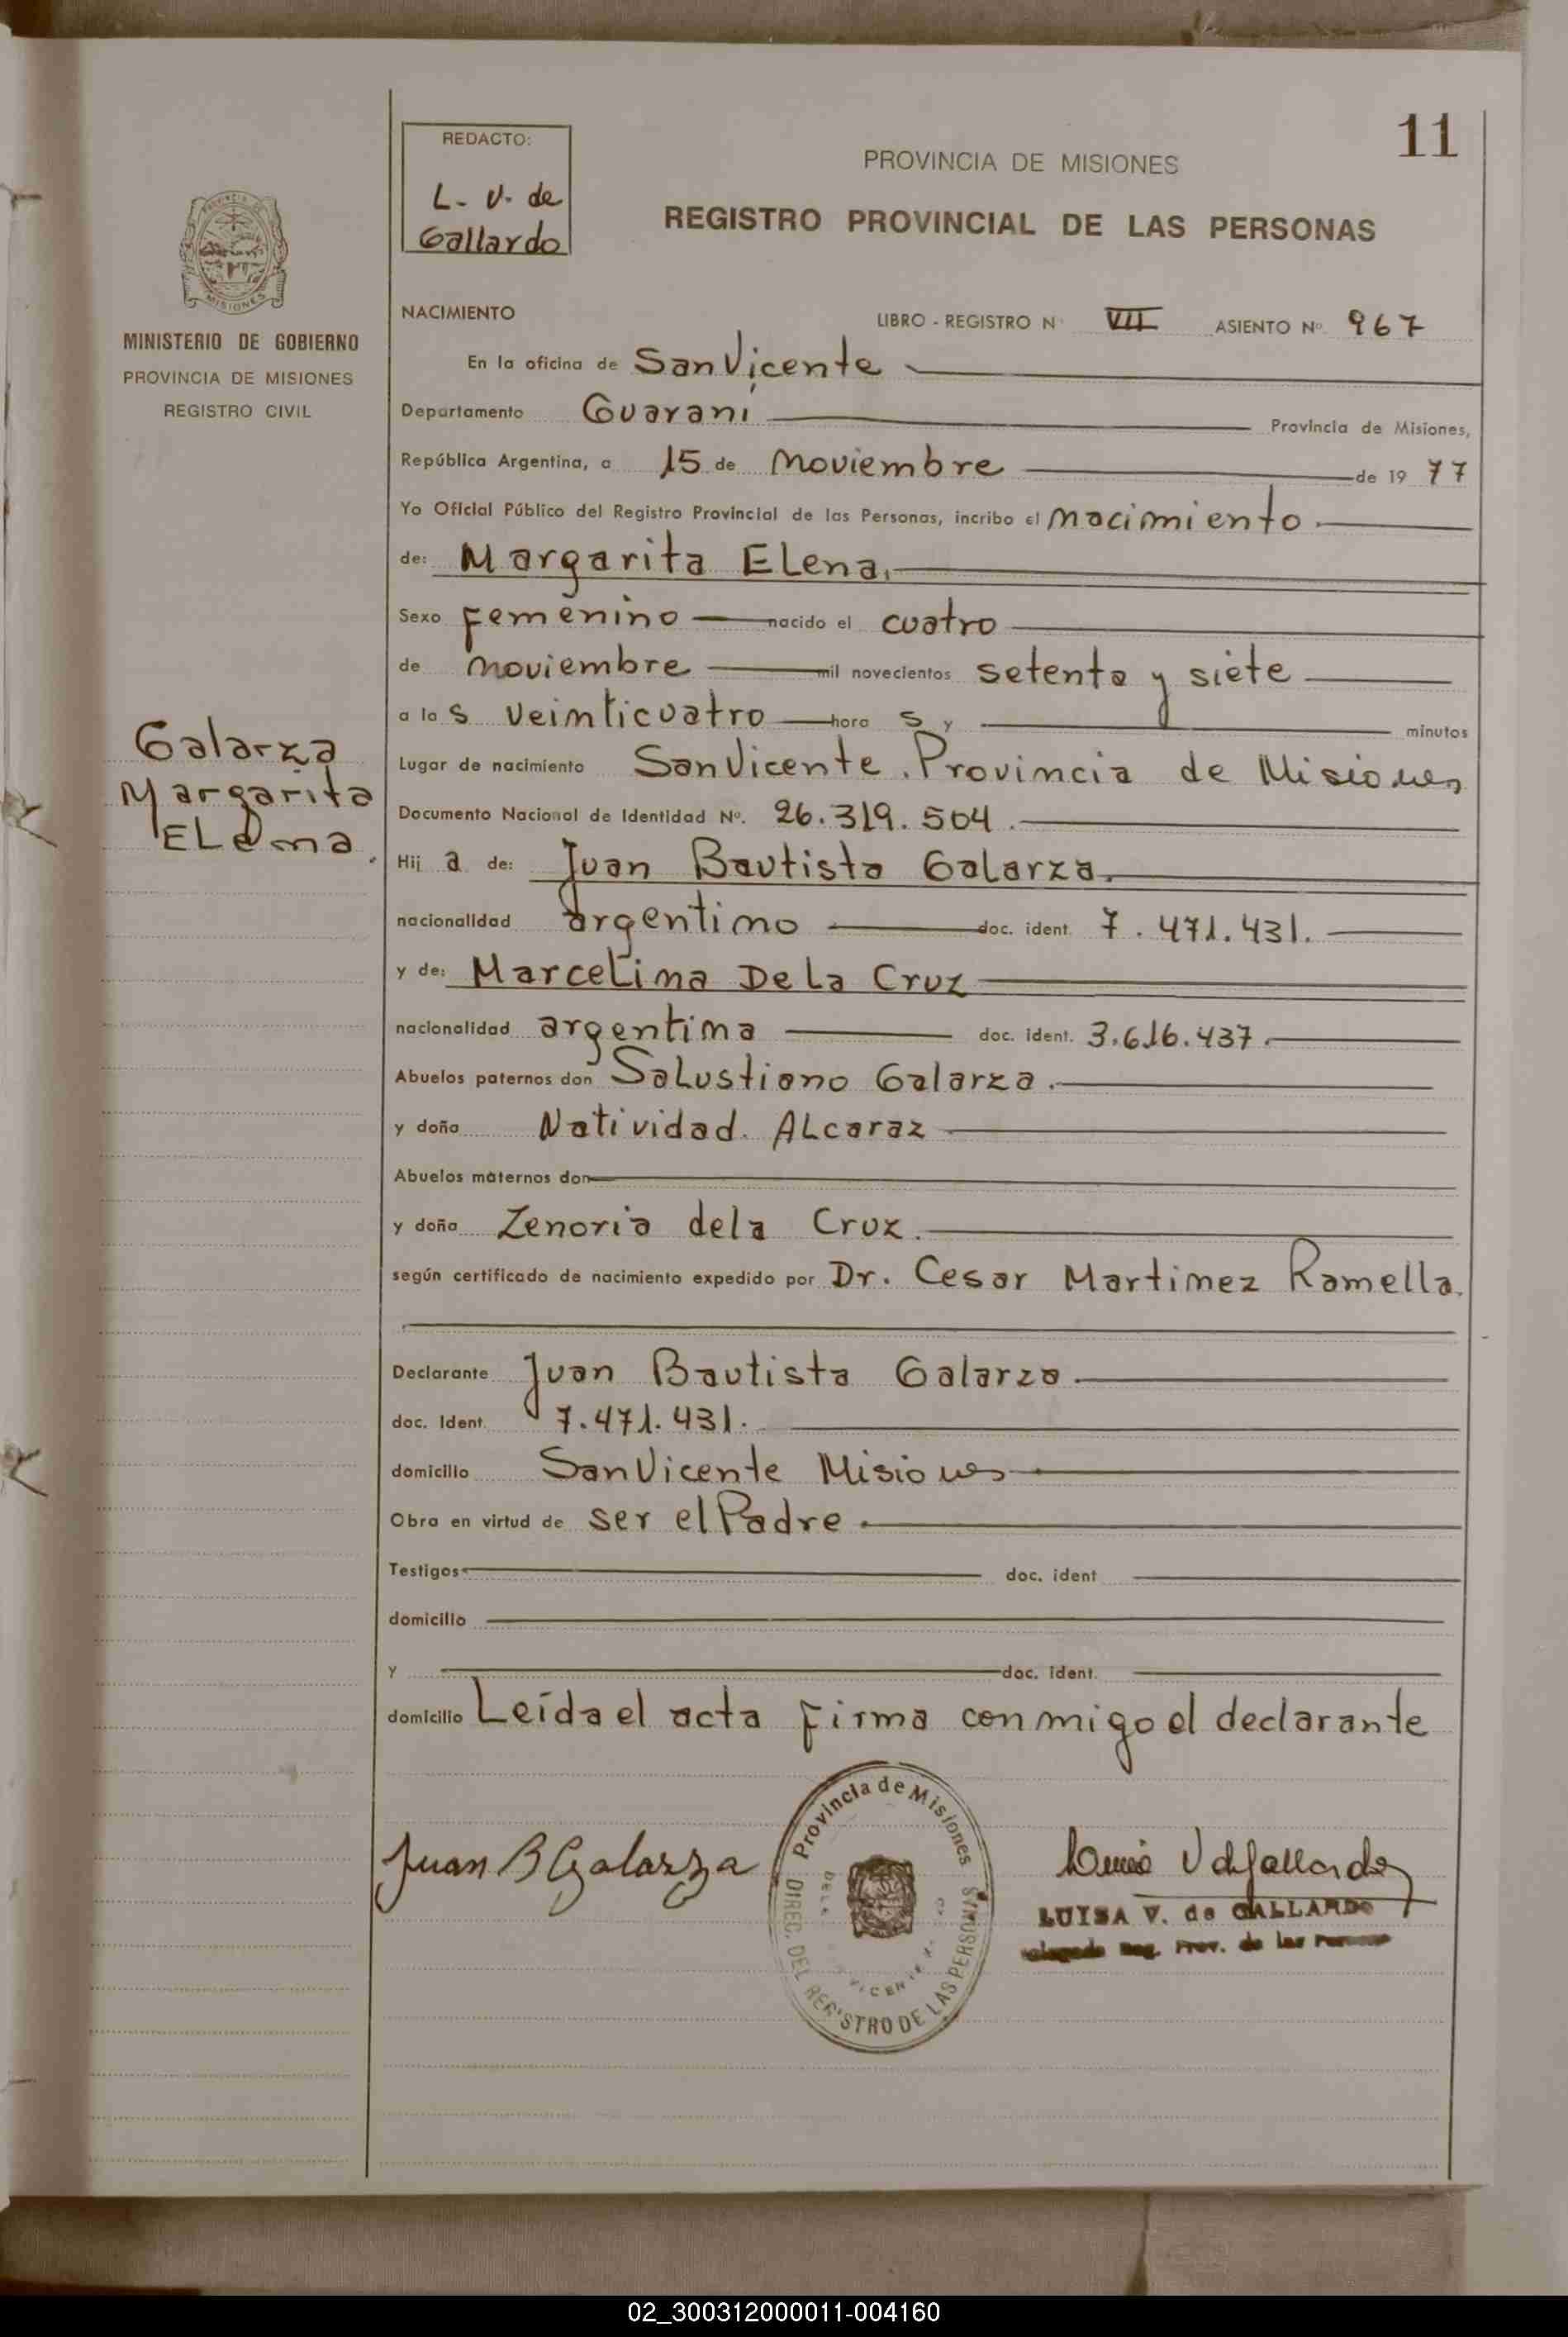 11
REDACTO:
L. V. de
Gallardo
PROVINCIA DE MISIONES
REGISTRO PROVINCIAL DE LAS PERSONAS
MISIONES
MINISTERIO DE GOBIERNO
PROVINCIA DE MISIONES
REGISTRO CIVIL
Galarza
Margarita
ELena.
NACIMIENTO LIBRO - REGISTRO N° VII ASIENTO N° 967
En la oficina de San Vicente
Departamento Guaraní Provincia de Misiones,
República Argentina, a 15 de noviembre de 19 77
Yo Oficial Público del Registro Provincial de las Personas, incribo el nacimiento.
de: Margarita ELena.
Sexo Femenino nacido el cuatro
de noviembre mil novecientos setenta y siete
a las veinticuatro horas y minutos
Lugar de nacimiento San Vicente. Provincia de Misiones
Documento Nacional de Identidad N°. 26.319.504.
Hija de: Juan Bautista Galarza.
nacionalidad argentino doc. ident. 7.471.431.
y de: Marcelina De La Cruz
nacionalidad argentina doc. ident. 3.616.437.
Abuelos paternos don Salustiano Galarza.
y doña Natividad. ALcaraz
Abuelos maternos don
y doña Zenoria de la Cruz.
según certificado de nacimiento expedido por Dr. Cesar Martinez Ramella.
Declarante Juan Bautista Galarza.
doc. Ident. 7.471.431.
domicilio San Vicente Misiones
Obra en virtud de ser el Padre.
Testigos doc. ident
domicilio
y doc. ident.
domicilio Leída el acta firma conmigo el declarante
Juan B Galarza
Provincia de Misiones
DIREC. DEL REGISTRO DE LAS PERSONAS
LUISA V. de GALLARDO
Reg. Prov. de las Personas
02_300312000011-004160